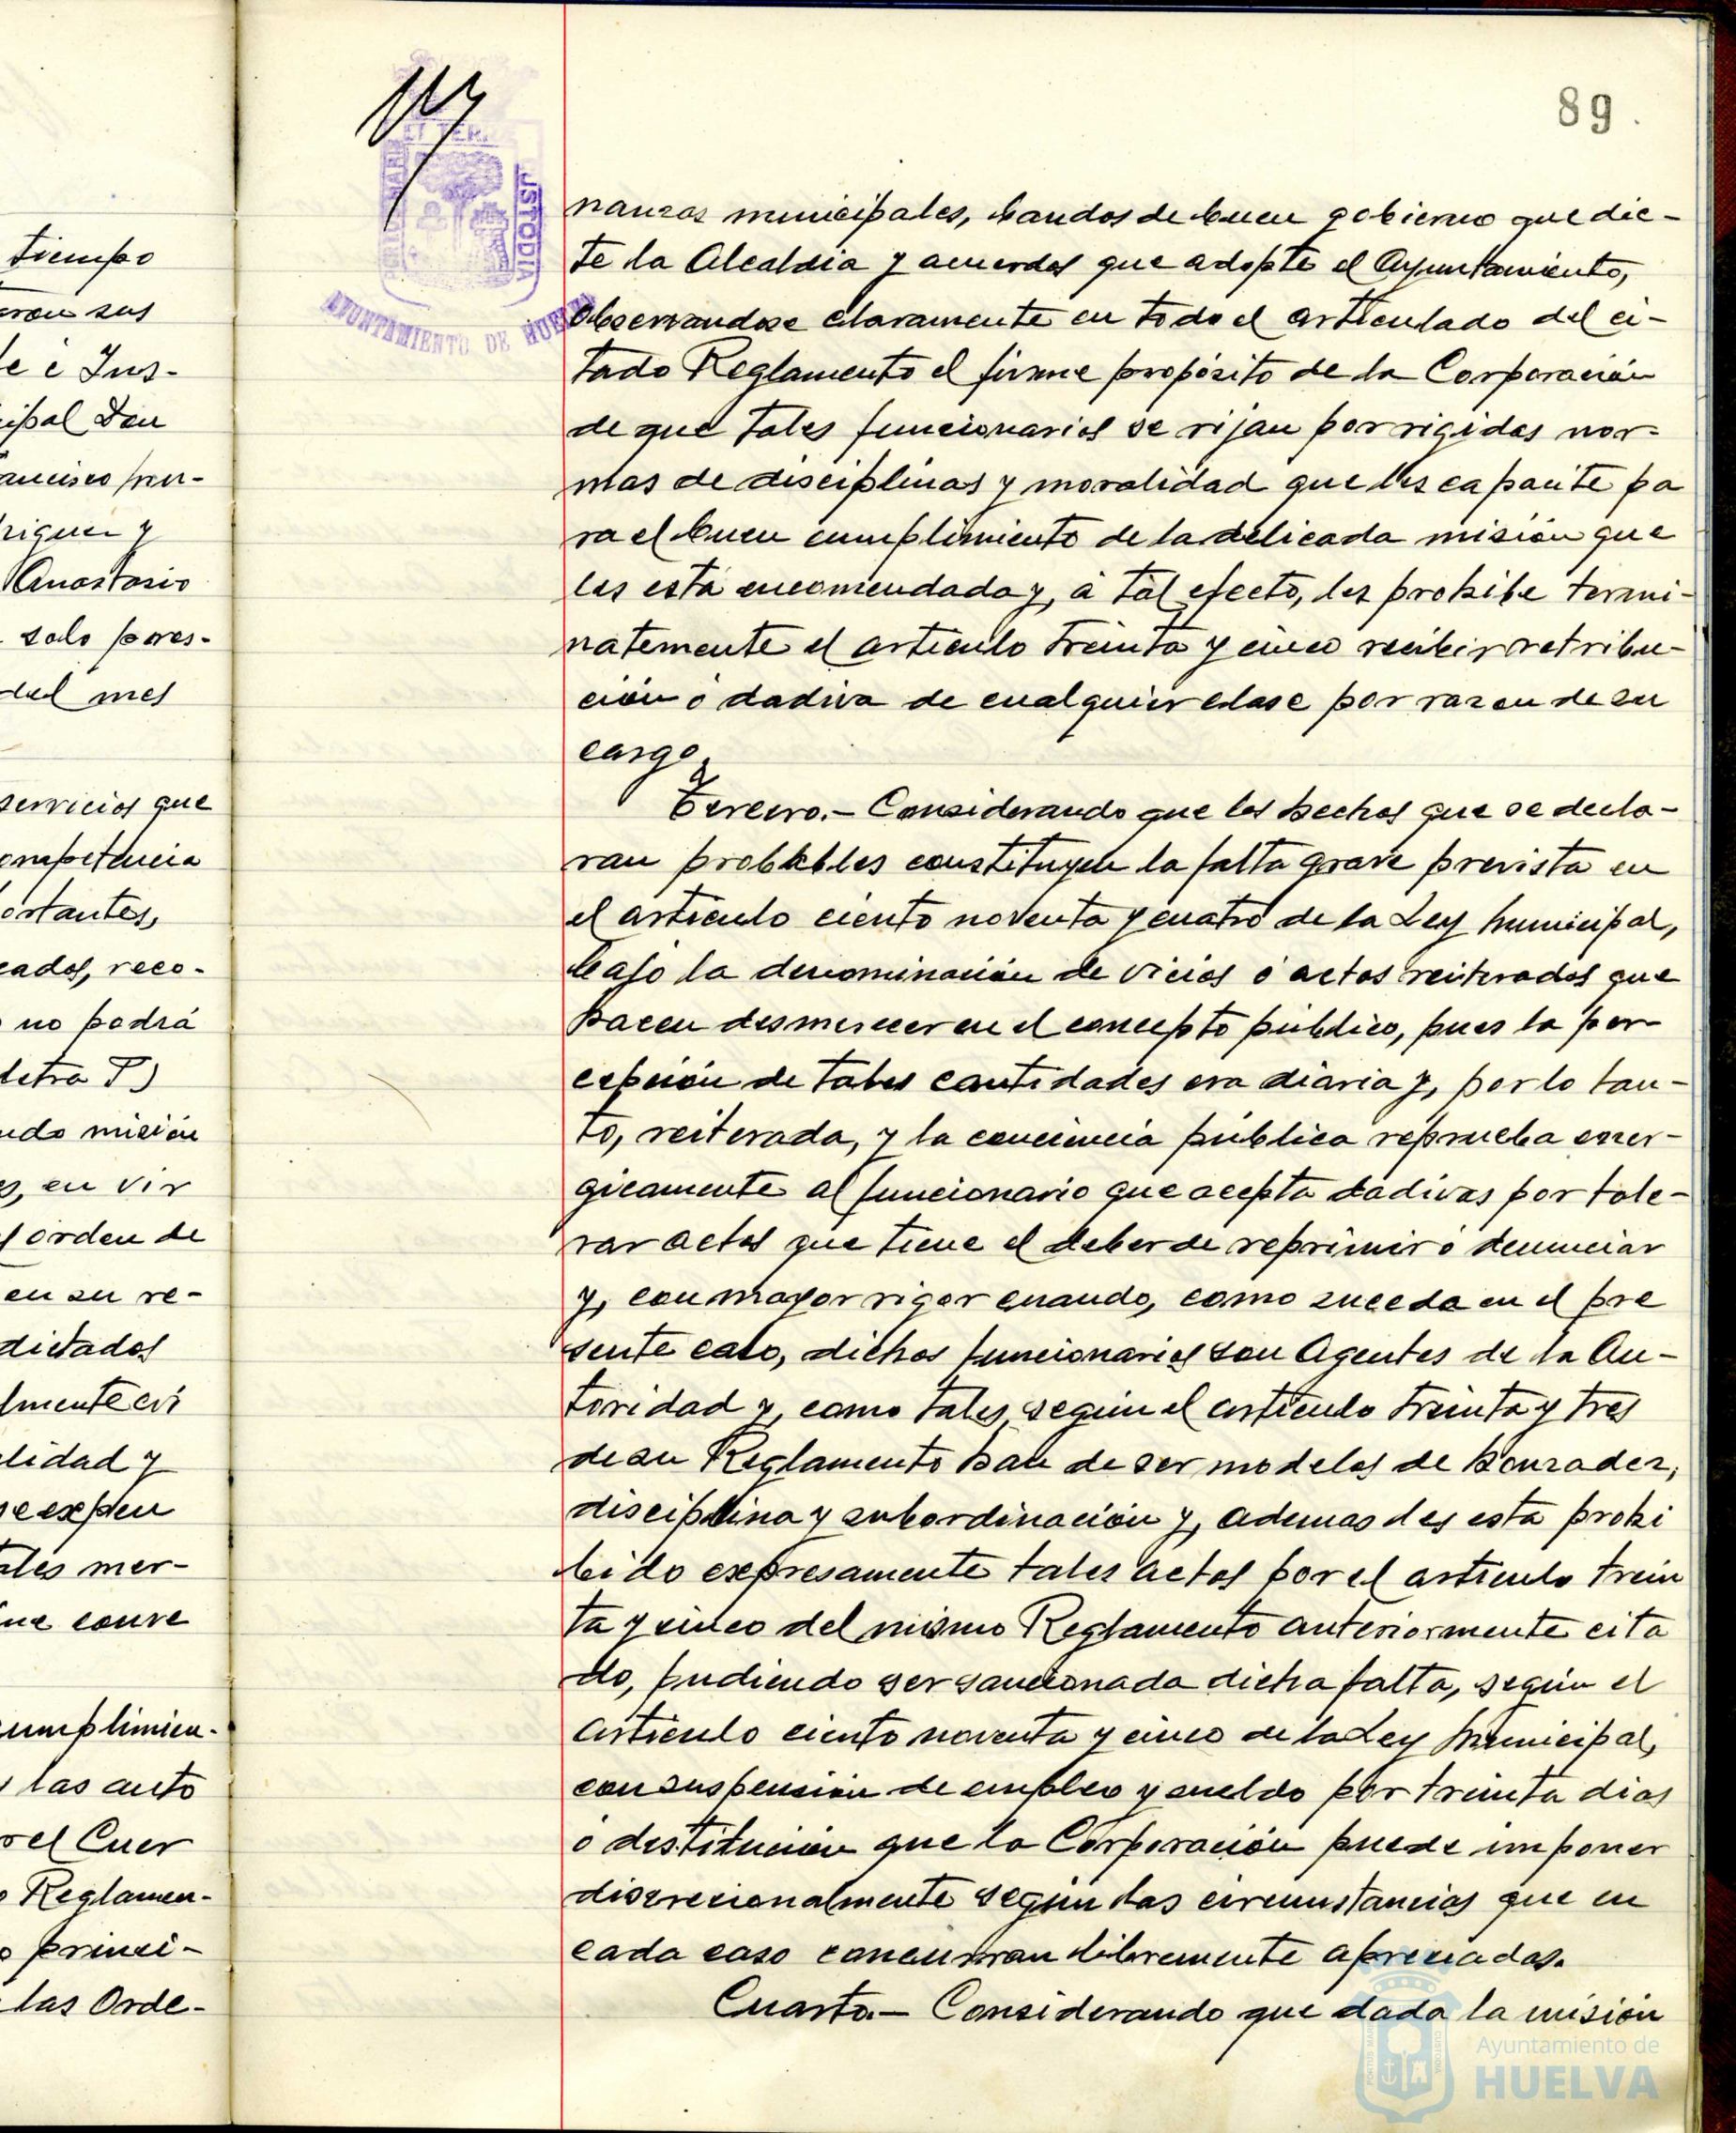 tiempo
ron sus
le é Ins-
cipal Don
ancisco
riguez y
Anastasio
solo pares-
del mes
servicios que
ompetencia
ortantes,
cados, reco-
no podrá
letra T)
ndo misión
es, en vir
orden de
en su re-
dictados
lmente
lidad y
se expen
ales mer-
ue conve
cumplimien-
las auto
el Cuer
Reglamen-
princi-
las Orde-
89.
ET TERR
CUSTODIA
AYUNTAMIENTO DE HUELVA
nanzas municipales, bandos de buen gobierno que dic-
te la Alcaldia y acuerdos que adopte el Ayuntamiento,
observandose claramente en todo el articulado del ci-
tado Reglamento el firme propósito de la Corporación
de que tales funcionarios se rijan por rigidas nor-
mas de disciplinas y moralidad que les capacite pa
ra el buen cumplimiento de la delicada misión que
les está encomendada y, á tal efecto, les prohibe termi-
natemente el articulo treinta y cinco recibir retribu-
ción ó dadiva de cualquier clase por razon de su
cargo.
Tercero.- Considerando que los hechos que se decla-
ran probables constituyen la falta grave prevista en
el articulo ciento noventa y cuatro de la Ley Municipal,
bajo la denominación de vicios ó actos reiterados que
hacen desmerecer en el concepto público, pues la per-
cepción de tales cantidades era diaria y, por lo tan-
to, reiterada, y la conciencia pública reprueba ener-
gicamente al funcionario que acepta dadivas por tole-
rar actos que tiene el deber de reprimir ó denunciar
y, con mayor rigor cuando, como suceda en el pre
sente caso, dichos funcionarios son Agentes de la Au-
toridad y, como tales, según el articulo treinta y tres
de su Reglamento han de ser modelos de honradez,
disciplina y subordinación y, ademas les esta prohi
bido expresamente tales actos por el articulo trein
ta y cinco del mismo Reglamento anteriormente cita
do, pudiendo ser sancionada dicha falta, según el
articulo ciento noventa y cinco de la Ley Municipal,
con suspensión de empleo y sueldo por treinta dias
ó destitución que la Corporación puede imponer
discrecionalmente según las circunstancias que en
cada caso concurran libremente apreciadas.
Cuarto.- Considerando que dada la misión
Ayuntamiento de
HUELVA